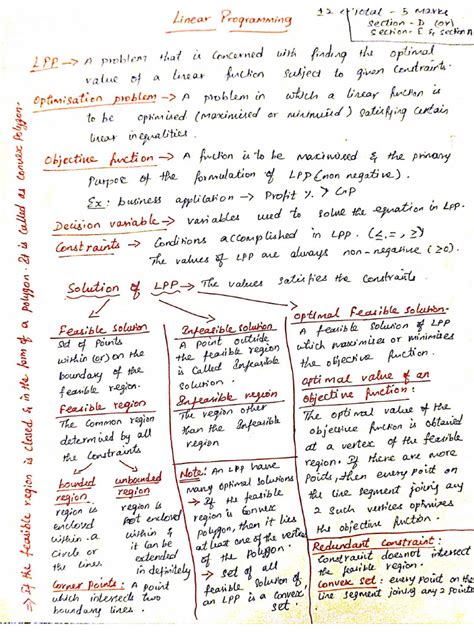 Linear Programming
12 of total - 5 Marks
section - D (or)
section - E & section A
LPP → A problem that is concerned with finding the optimal
value of a linear function subject to given constraints.
Optimisation problem → A problem in which a linear function is
to be optimised (maximised or minimised) satisfying certain
linear inequalities.
Objective function → A function is to be maximised & the primary
Purpose of the formulation of LPP (non negative).
Ex: business application → Profit % > CP
Decision variable → variables used to solve the equation in LPP.
Constraints → Conditions accomplished in LPP. (≤, =, ≥)
The values of LPP are always non-negative (≥0).
Solution of LPP → The values satisfies the constraints
Feasible solution
Set of Points
within (or) on the
boundary of the
feasible region.
Feasible region
The Common region
determined by all
the Constraints
bounded region
region is
enclosed
within a
Circle or
the lines
unbounded region
region is
not enclosed
within &
it can be
extended
indefinitely
Corner points: A point
which intersects two
boundary lines.
Infeasible solution
A point outside
the feasible region
is called Infeasible
solution.
Infeasible region
The region other
than the Infeasible
Note: An LPP have
many optimal solutions
→ If the feasible
region is convex
Polygon, then it lies
at least one of the vertices
of the Polygon.
→ Set of all
feasible solution of
an LPP is a convex
set.
Optimal Feasible solution:
A feasible solution of LPP
which maximises or minimises
the objective function.
Optimal value of an
Objective function:
The optimal value of the
objective function is obtained
at a vertex of the feasible
region. If there are more
points, then every point on
the line segment joining any
2 such vertices optimises
the objective function.
Redundant Constraint:
Constraint doesnot intersect
the feasible region.
Convex set: every point on the
line segment joining any 2 points
→ If the feasible region is closed & in the form of a polygon. It is called as convex polygon.